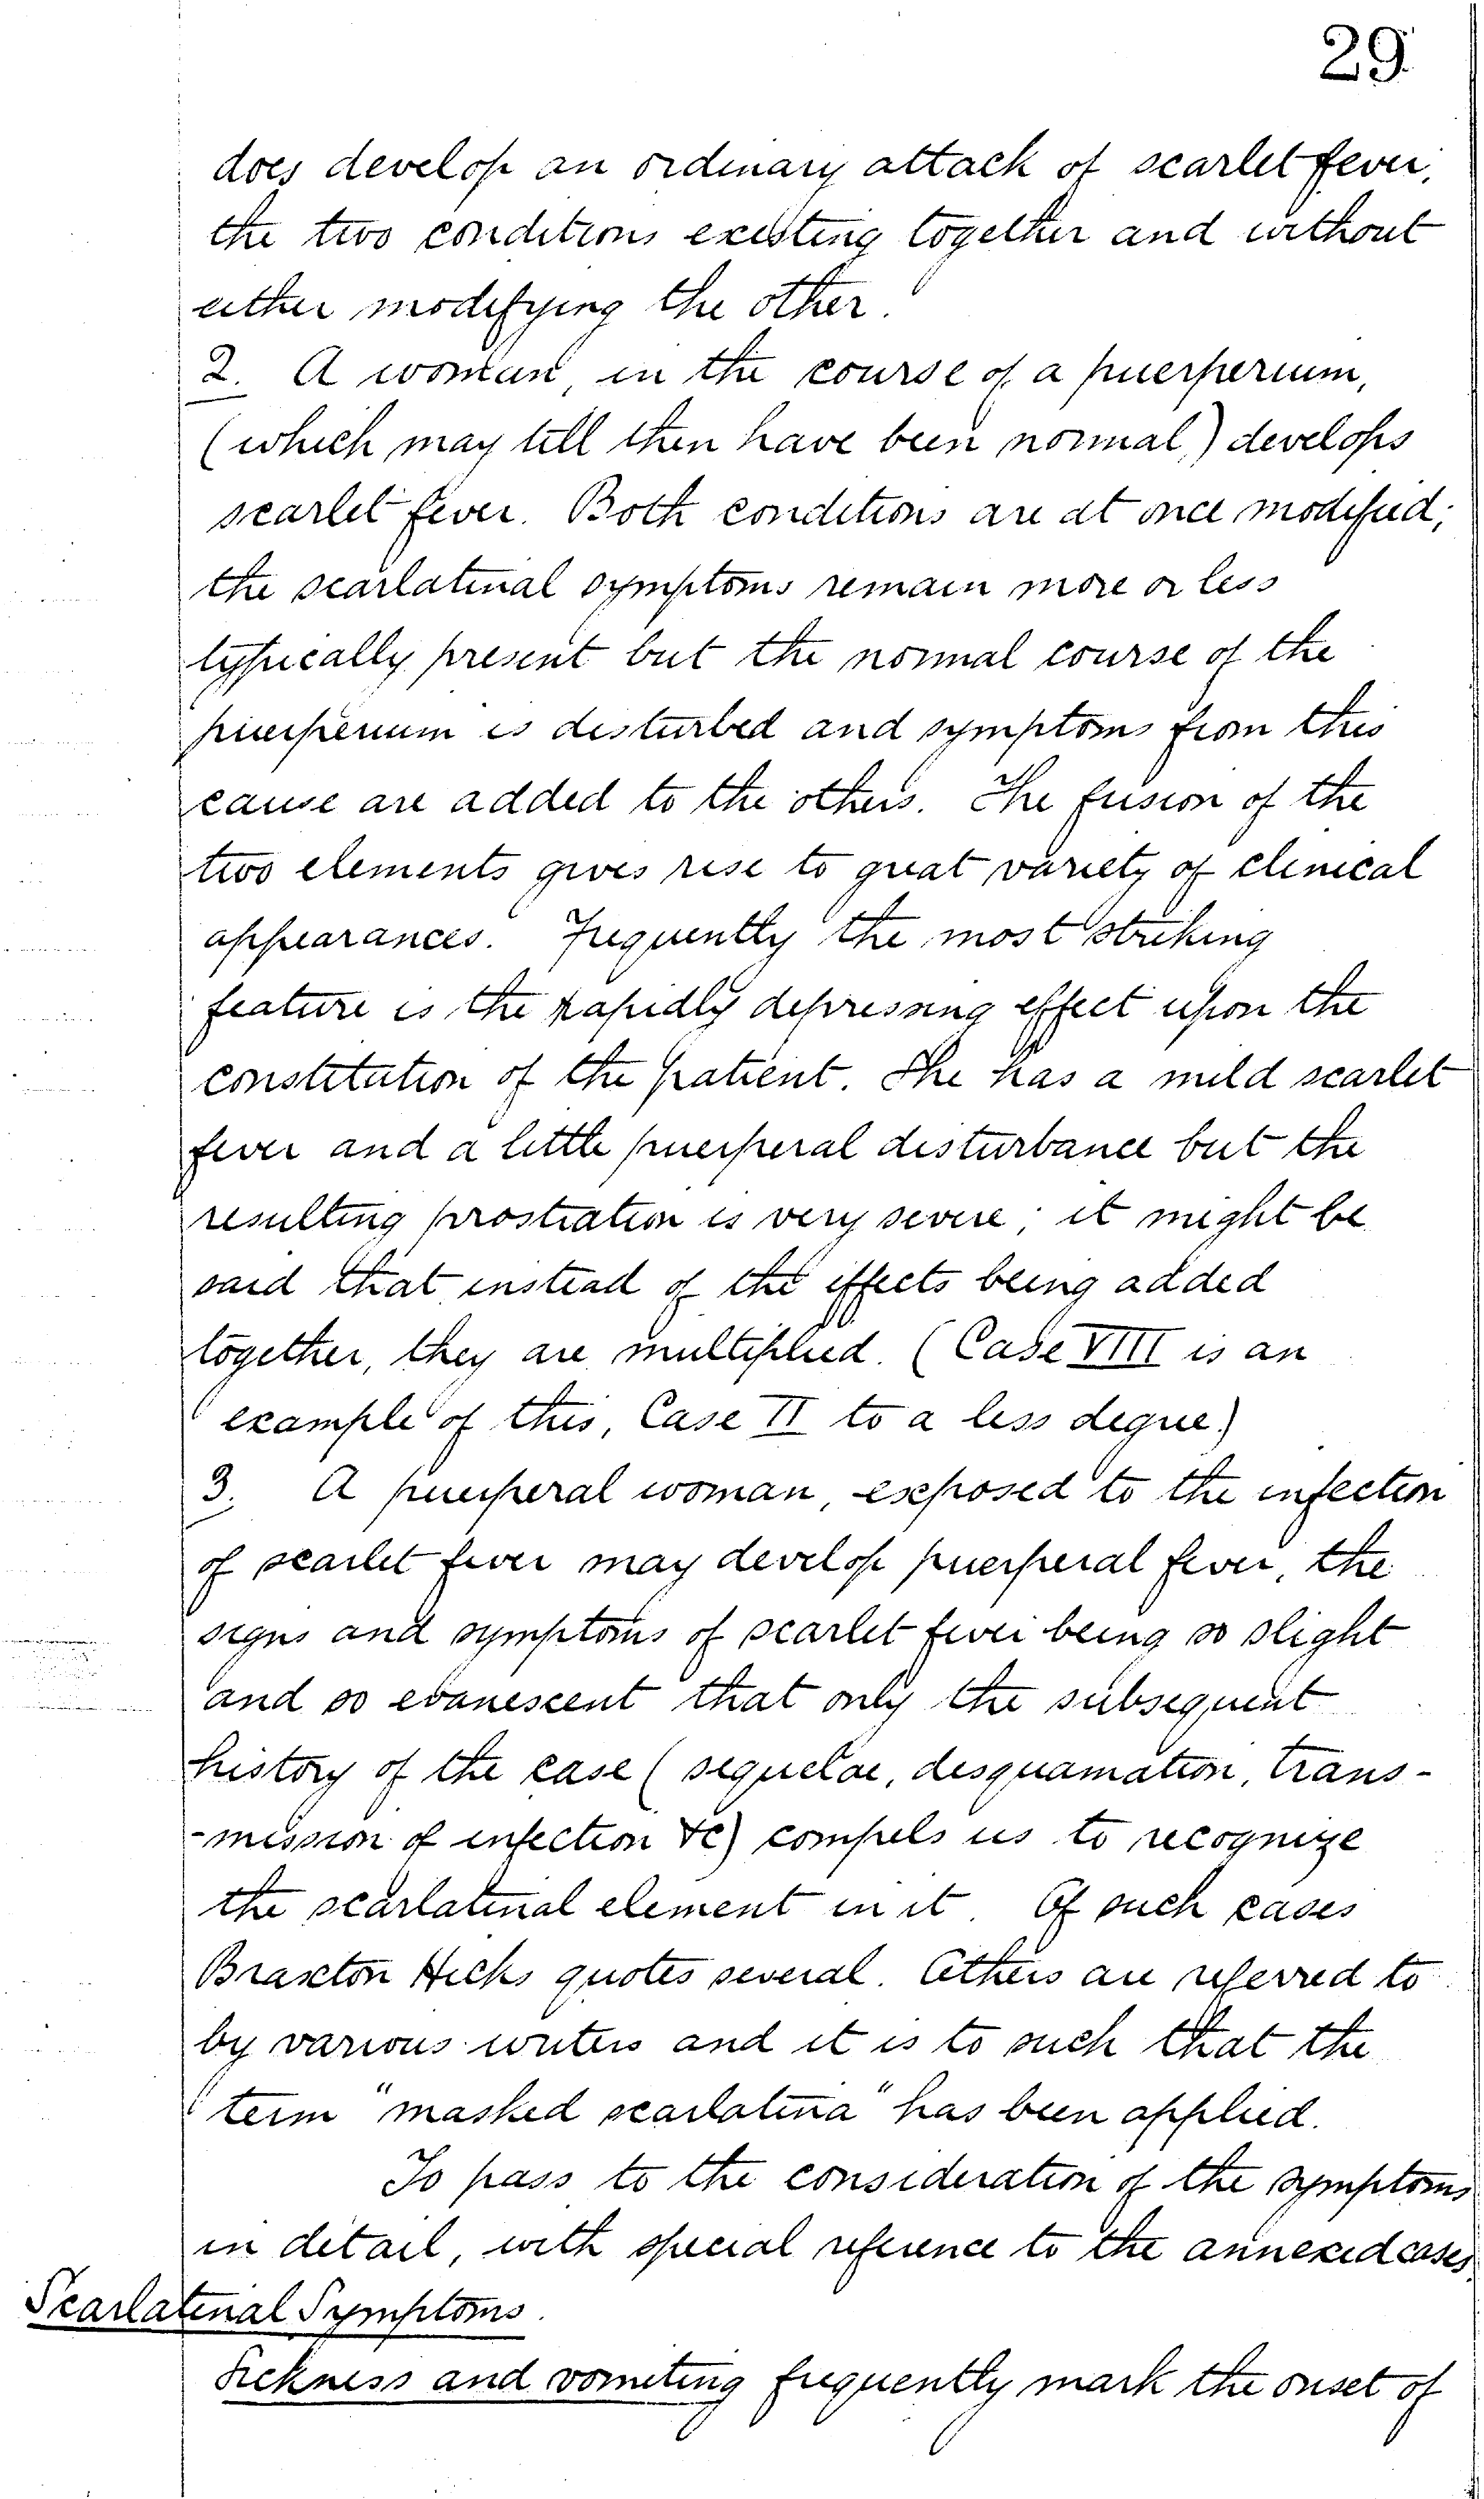 29.
does develop an ordinary attack of scarlet fever,
the two conditions existing together and without
either modifying the other.
2. A woman, in the course of a puerperium,
(which may till then have been normal,) develops
scarlet fever. Both conditions are at once modified;
the scarlatinal symptoms remain more or less
typically present but the normal course of the
puerperium is disturbed and symptoms from this
cause are added to the others. The fusion of the
two elements gives rise to great variety of clinical
appearances. Frequently the most striking
feature is the rapidly depressing effect upon the
constitution of the patient. She has a mild scarlet
fever and a little puerperal disturbance but the
resulting prostration is very severe; it might be
said that instead of the effects being added
together, they are multiplied. (Case VIII is an
example of this, Case II to a less degree.)
3. A puerperal woman, exposed to the infection
of scarlet fever may develop puerperal fever, the
signs and symptoms of scarlet fever being so slight
and so evanescent that only the subsequent
history of the case (sequelae, desquamation, trans-
-mission of infection &c) compels us to recognize
the scarlatinal element in it. Of such cases
Braxton Hicks quotes several. Others are referred to
by various writers and it is to such that the
term "masked scarlatina" has been applied.
To pass to the consideration of the symptoms
in detail, with special reference to the annexed cases.
Scarlatinal Symptoms.
Sickness and vomiting frequently mark the onset of